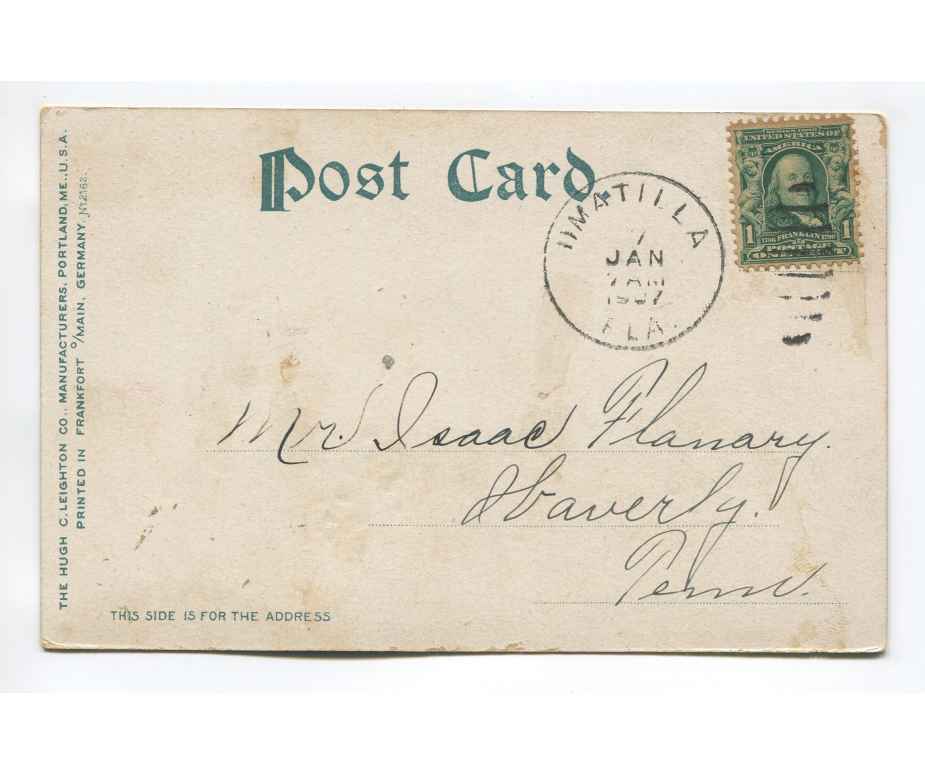 THE HUGH C. LEIGHTON CO., MANUFACTURERS, PORTLAND, ME., U.S.A.
PRINTED IN FRANKFORT o/MAIN, GERMANY. No.2162.
Post Card.
UMATILLA
7
JAN
7AM
1907
FLA.
SERIES 1902
UNITED STATES OF
AMERICA
1 1
1706 FRANKLIN 1790
POSTAGE
ONE CENT
Mr. Isaac Flanary.
Waverly.
Tenn.
THIS SIDE IS FOR THE ADDRESS